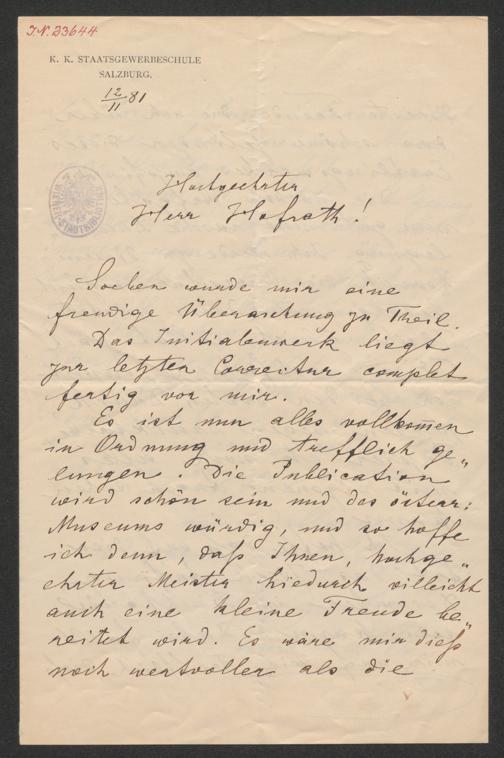 J.N. 23644
K. K. STAATSGEWERBESCHULE
SALZBURG.
12/11 81
Hochgeehrter
Herr Hofrath!
Soeben wurde mir eine
freudige Überaschung zu Theil.
Das Initialenwerk liegt
zur letzten Correctur complet
fertig vor mir.
Es ist nun alles vollkom̅en
in Ordnung und trefflich ge„
lungen. Die Publication
wird schön sein und des österr:
Museums würdig, und so hoffe
ich denn, daß Ihnen, hochge„
ehrter Meister hiedurch villeicht
auch eine kleine Freude be„
reitet wird. Es wäre mir dieß
noch wertvoller als die